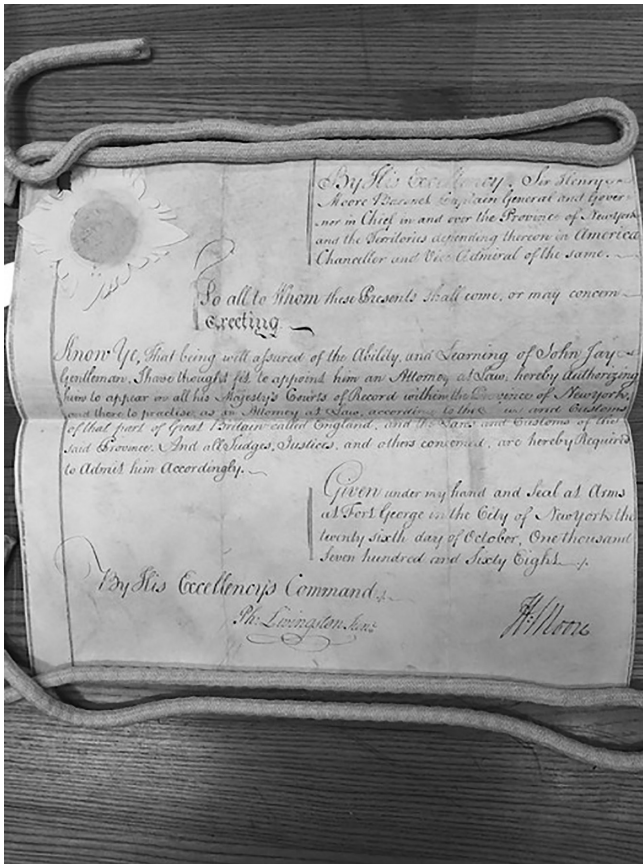 By His Excellency Sir Henry
Moore Baronet Captain General and Gover
nor in Chief in and over the Province of Newyork
and the Territories depending thereon in America
Chancellor and Vice Admiral of the same.
To all to Whom these Presents shall come, or may concern
Greeting.
Know Ye, That being well assured of the Ability, and Learning of John Jay
Gentleman, I have thought fit to appoint him an Attorney at Law, hereby authorizing
him to appear in all his Majesty's Courts of Record within the Province of Newyork,
and there to practise as an Attorney at Law, according to the and Customs
of that part of Great Britain called England, and the Laws and Customs of the
said Province. And all Judges, Justices, and others concerned, are hereby Required
to Admit him Accordingly.
Given under my hand and Seal at Arms
at Fort George in the City of New York the
twenty sixth day of October, One thousand
Seven hundred and Sixty Eight
By His Excellency's Command,
Ph: Livingston Junr.
H: Moore